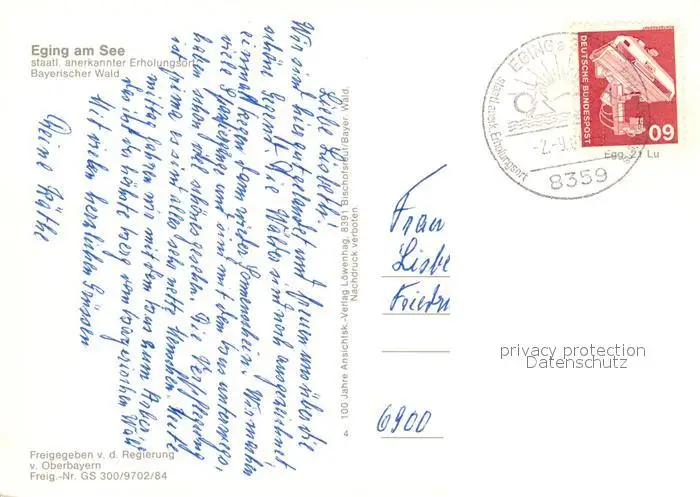 Eging am See
staatl. anerkannter Erholungsort
Bayerischer Wald
Liebe Lisbeth!
Wir sind hier gut gelandet und freuen uns über die
schöne Gegend. Die Wälder sind noch ausgezeichnet
einmal Regen dann wieder Sonnenschein. Wir machen
viele Spaziergänge und sind mit dem Bus unterwegs,
haben schon viel schönes gesehen. Die Verpflegung
ist prima es sind alles sehr nette Menschen. Heute
mittag fahren wir mit dem Bus zum Arber
das ist der höchste Berg vom bayerischen Wald
Mit vielen herzlichen Grüssen
Deine Käthe
Freigegeben v. d. Regierung
v. Oberbayern
Freig.-Nr. GS 300/9702/84
4 100 Jahre Ansichtsk.-Verlag Löwenhag, 8391 Bischofsreut/Bayer. Wald.
Nachdruck verboten.
EGING a
staatl. anerk. Erholungsort
-2.-9.8
8359
DEUTSCHE BUNDESPOST
60
Egg. 21 Lu
Frau
Lisbe
Friedr
6900
privacy protection
Datenschutz